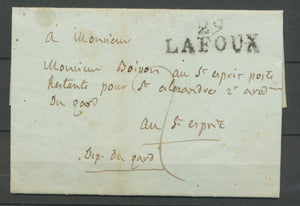 29
LAFOUX
à Monsieur
Monsieur Boisson au St esprit poste
Restante pour St alexandres 2e arodm
du gard
au St esprit
Dép. du gard